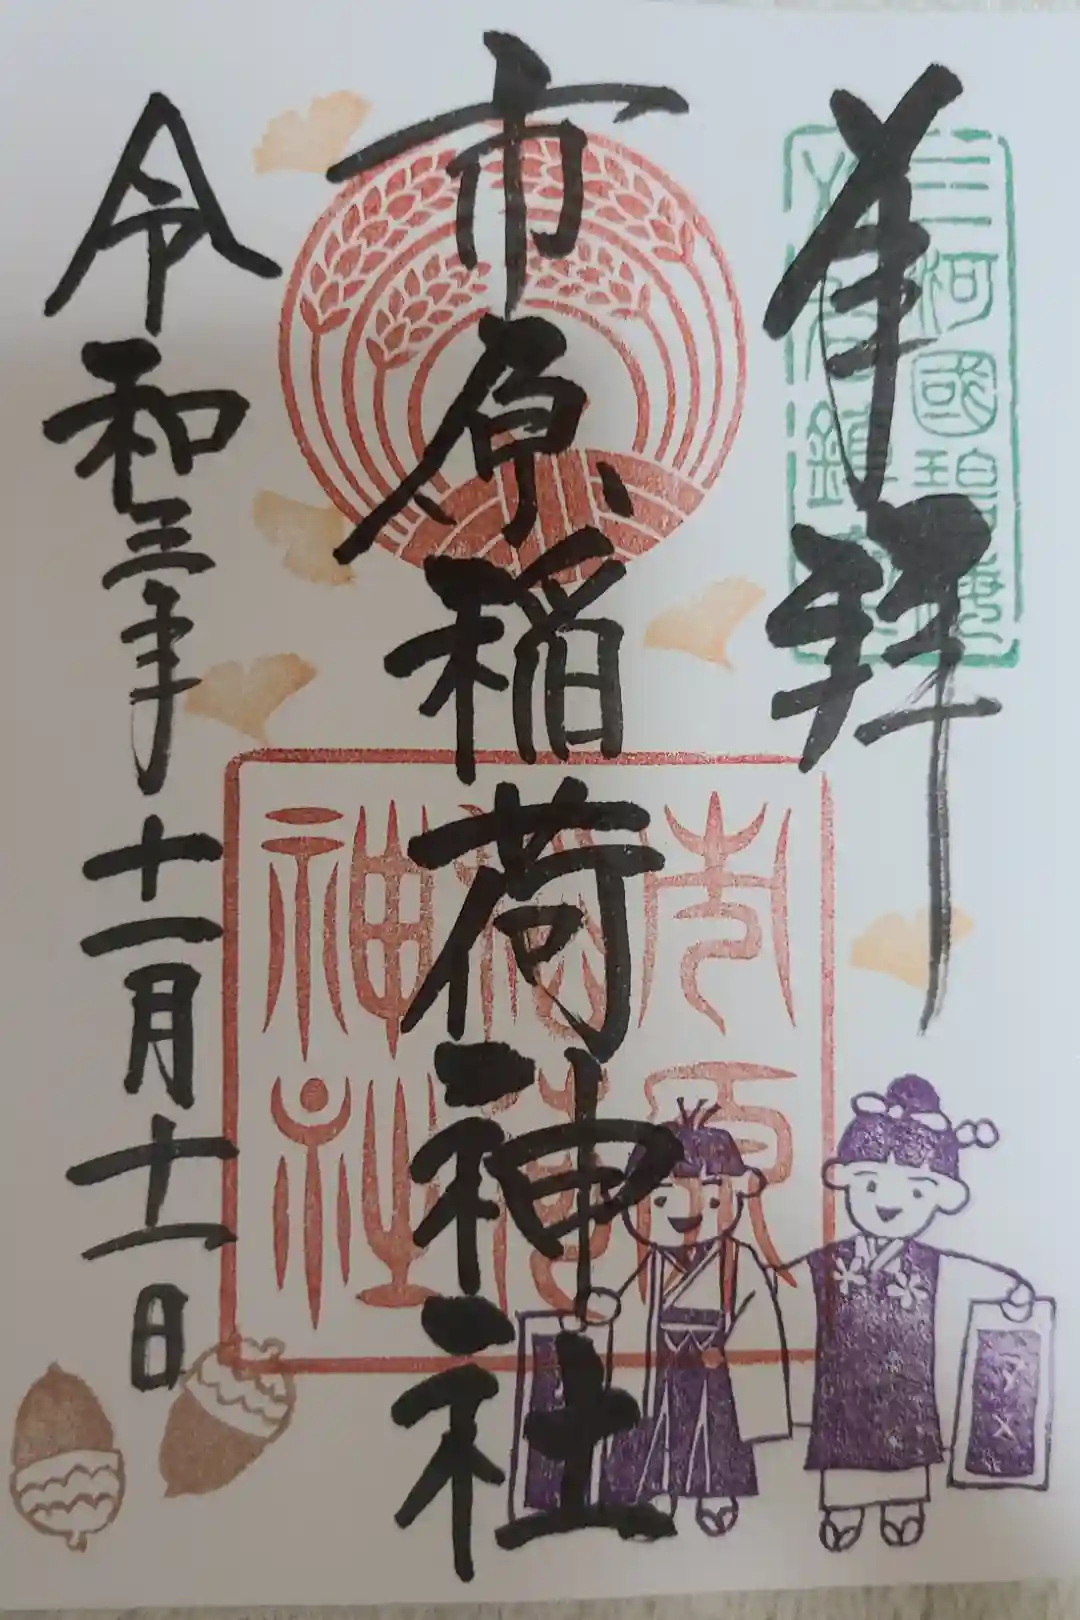 奉拝
三河國碧海
市原稲荷神社
市原稲荷神社
令和三年十一月十一日